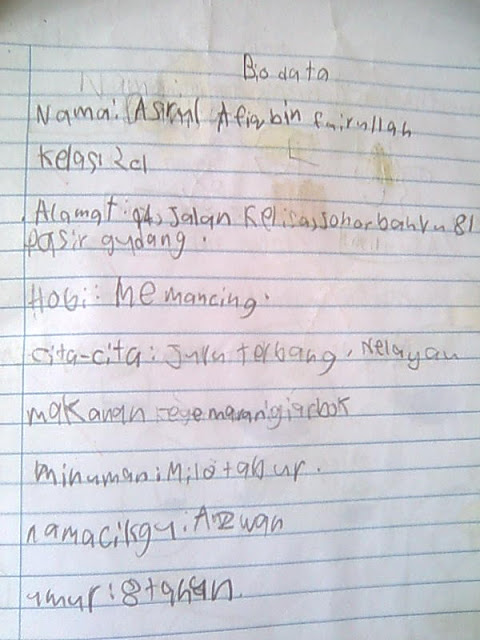 Biodata
Nama: Asrml Afiq bin Fairullah
Kelas: 2d
Alamat: 94, Jalan Kelisa, Johor bahru 81
Pasir gudang.
Hobi: Memancing.
Cita-cita: Juru terbang, Nelayan
makanan
minuman: Milo tabur.
nama cikgu: Azwan
umur: 8 tahun.